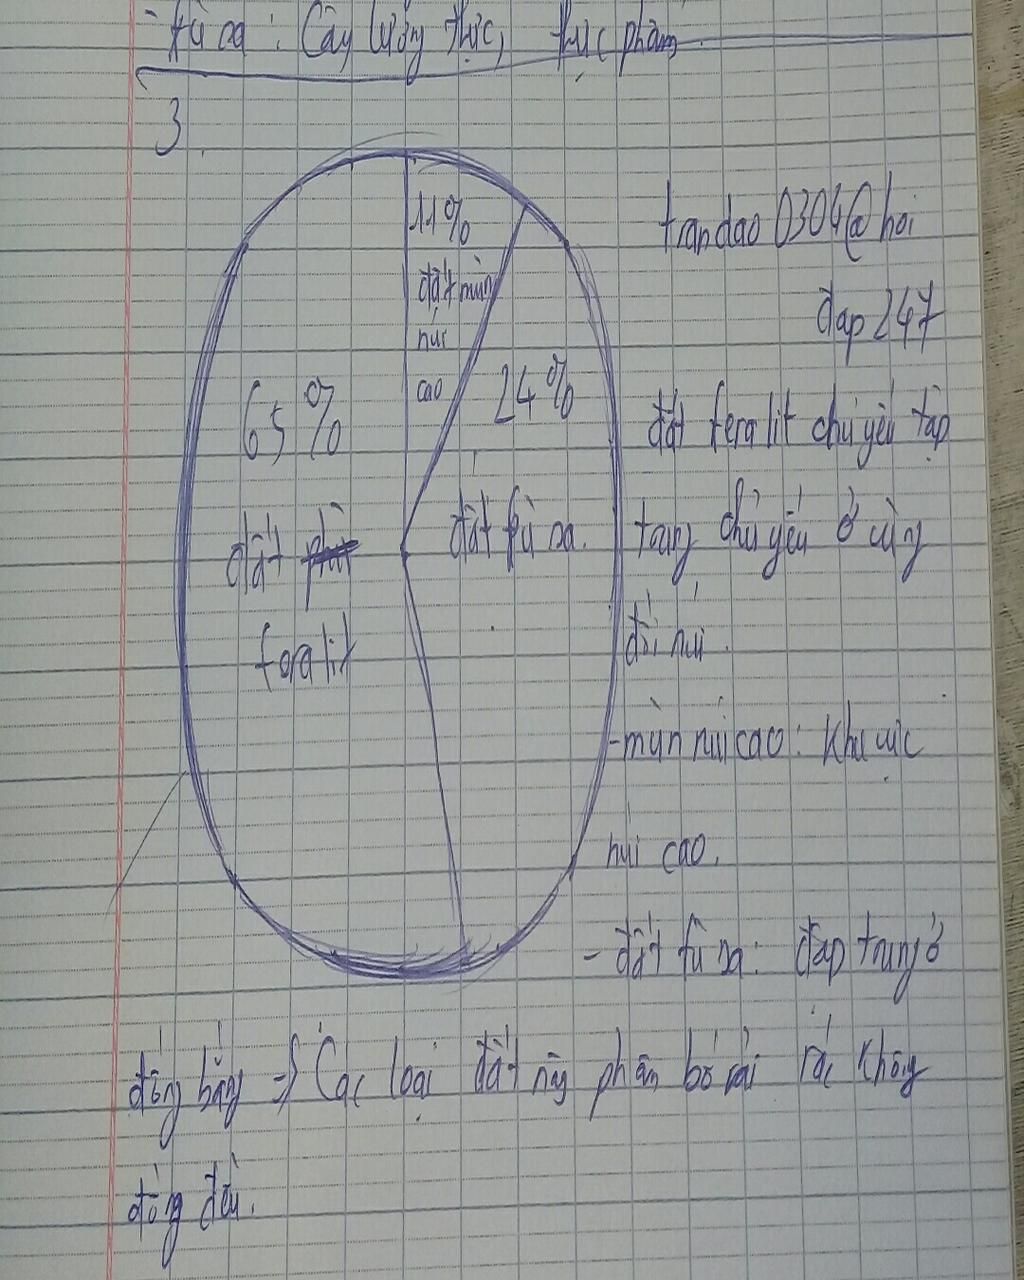 - fù sa : Cây lương thực, thực phẩm
3.
11%
đất mùn
núi
cao
24%
đất fù sa.
65%
đất
feralit
trandao 0304@hoi
đap 247
đất feralit chủ yếu tập
trung chủ yếu ở vùng
đồi núi.
- mùn núi cao : Khu vực
núi cao.
- đất fù sa : đập trung ở
đồng bằng => Các loại đất này phân bố rải rác không
đồng đều.